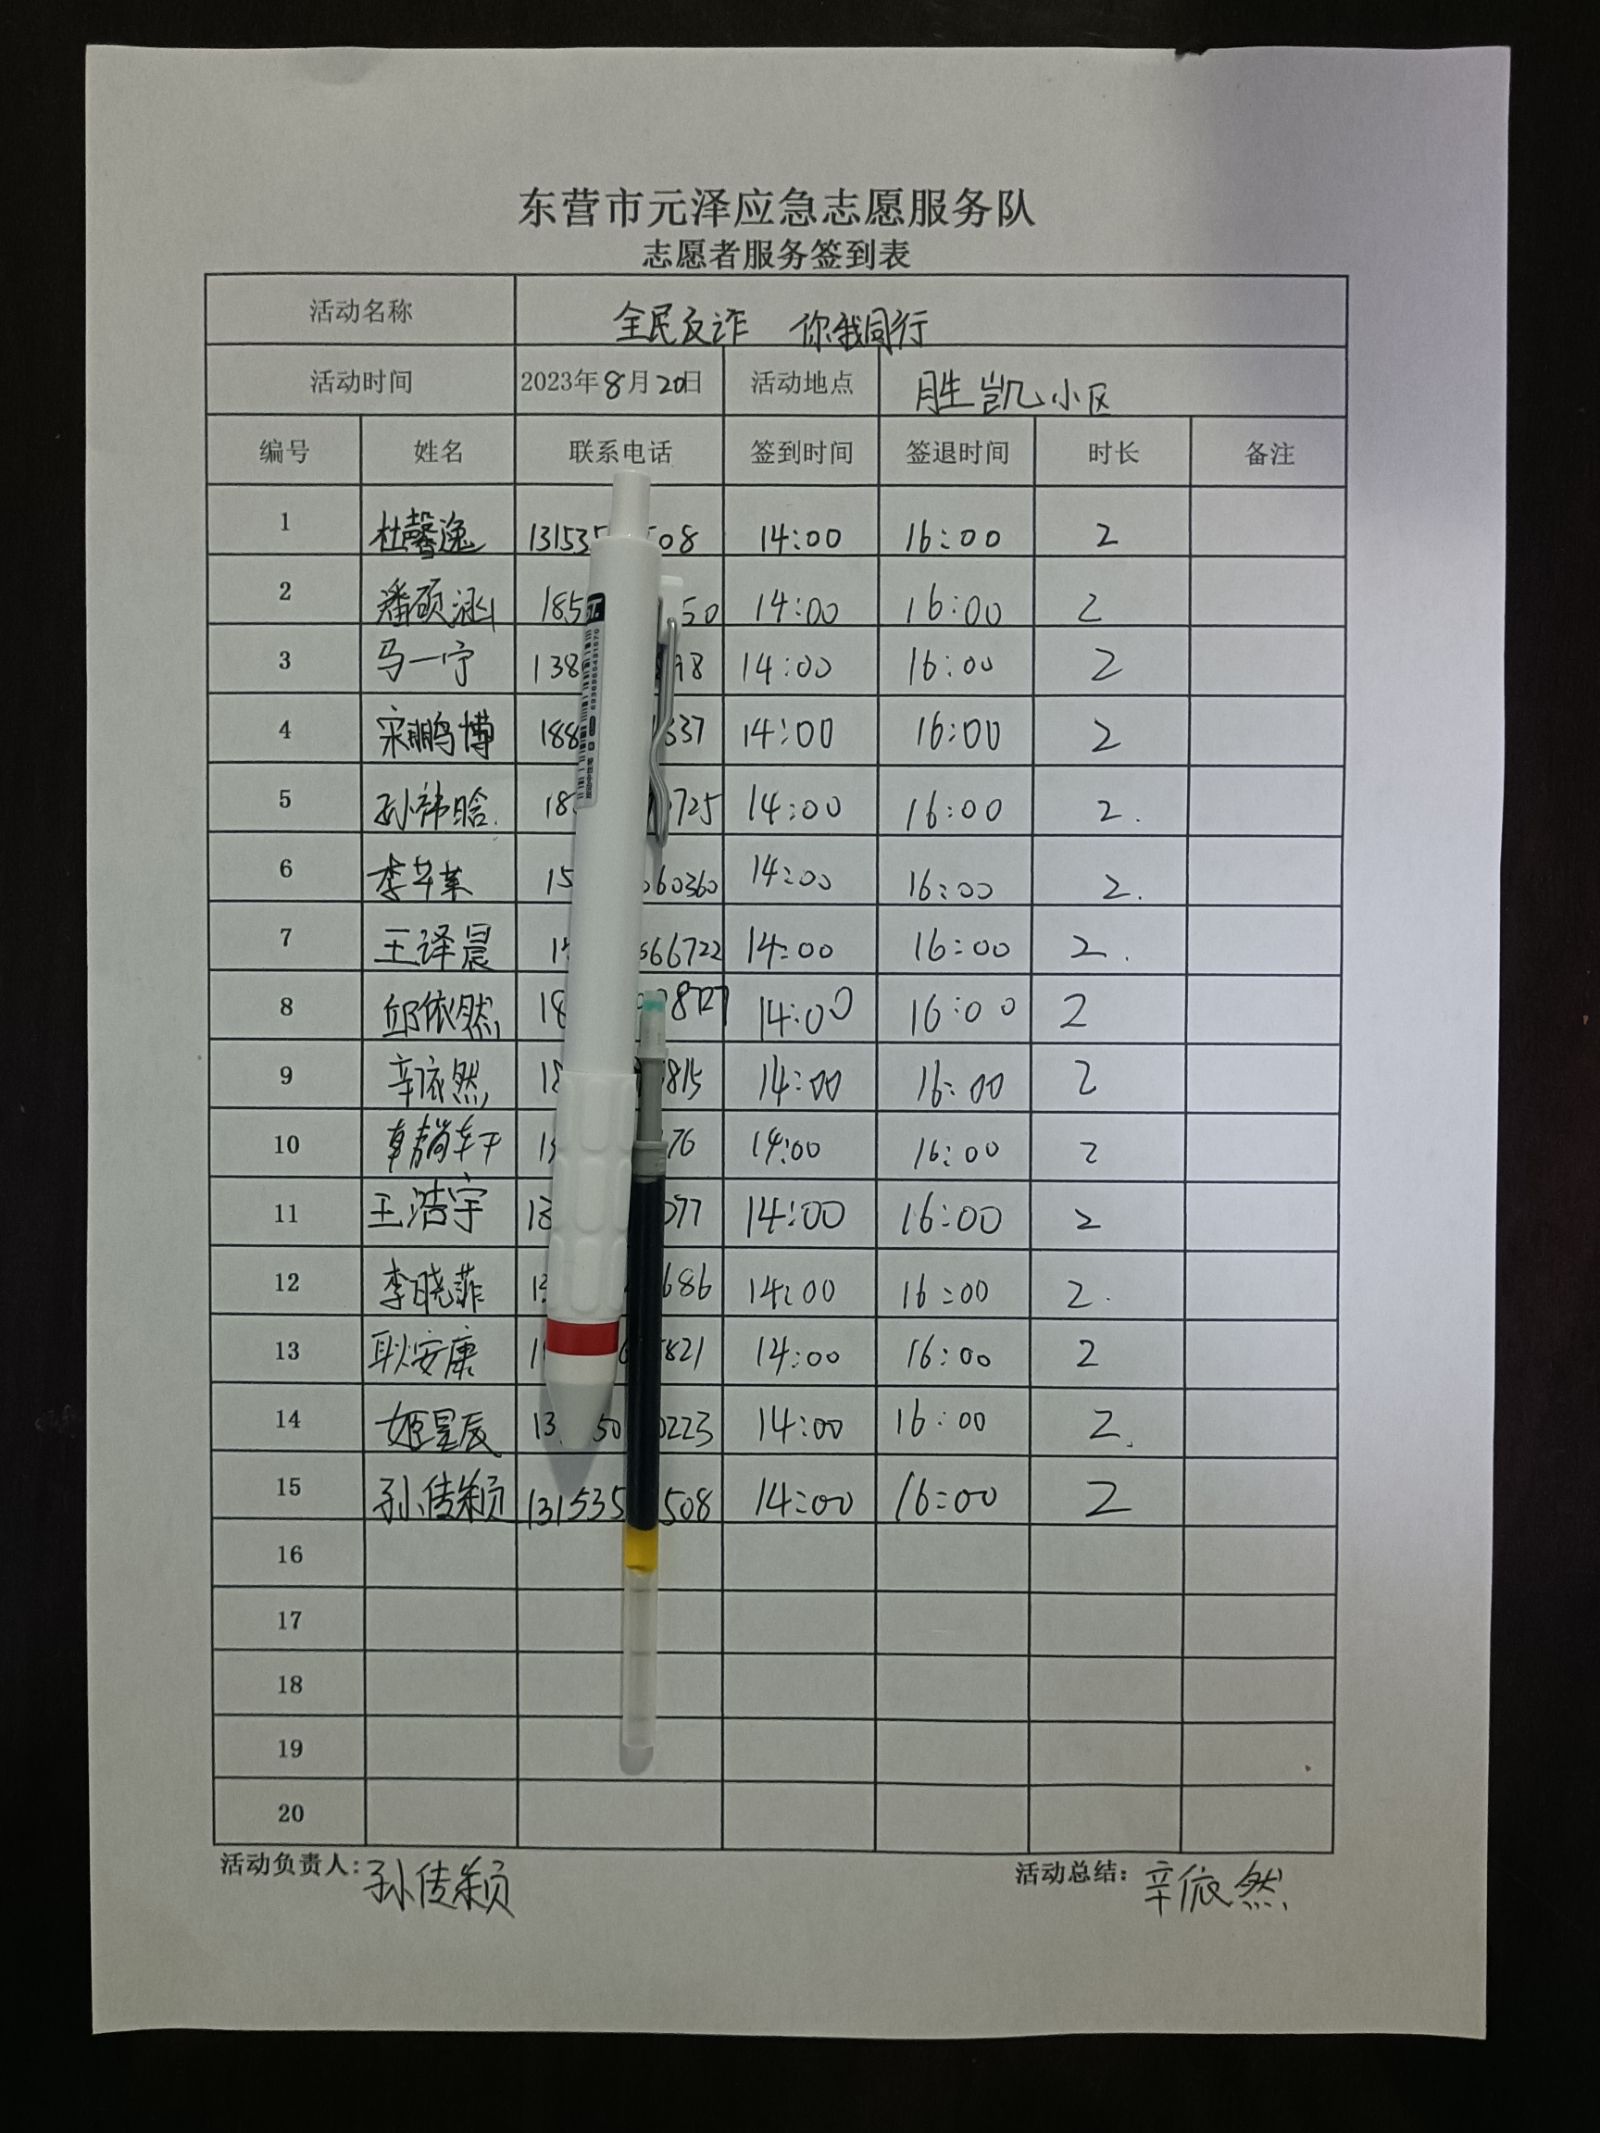 东营市元泽应急志愿服务队
志愿者服务签到表
活动名称 全民反诈 你我同行
活动时间 2023年8月20日 活动地点 胜凯小区
编号 姓名 联系电话 签到时间 签退时间 时长 备注
1 杜馨逸 13153 508 14:00 16:00 2
2 潘硕涵 185 50 14:00 16:00 2
3 马一宁 138 98 14:00 16:00 2
4 宋鹏博 188 337 14:00 16:00 2
5 孙祎晗. 18 725 14:00 16:00 2.
6 李 15 60360 14:00 16:00 2.
7 王译晨 1 66722 14:00 16:00 2.
8 邱依然 18 8727 14:00 16:00 2
9 辛依然 18 815 14:00 16:00 2
10 1 76 14:00 16:00 2
11 王浩宇 13 077 14:00 16:00 2
12 李晓菲 13 686 14:00 16:00 2.
13 耿安康 1 821 14:00 16:00 2
14 姬星辰 13 50 0223 14:00 16:00 2.
15 孙传颖 131535 508 14:00 16:00 2
16
17
18
19
20
活动负责人:孙传颖 活动总结:辛依然